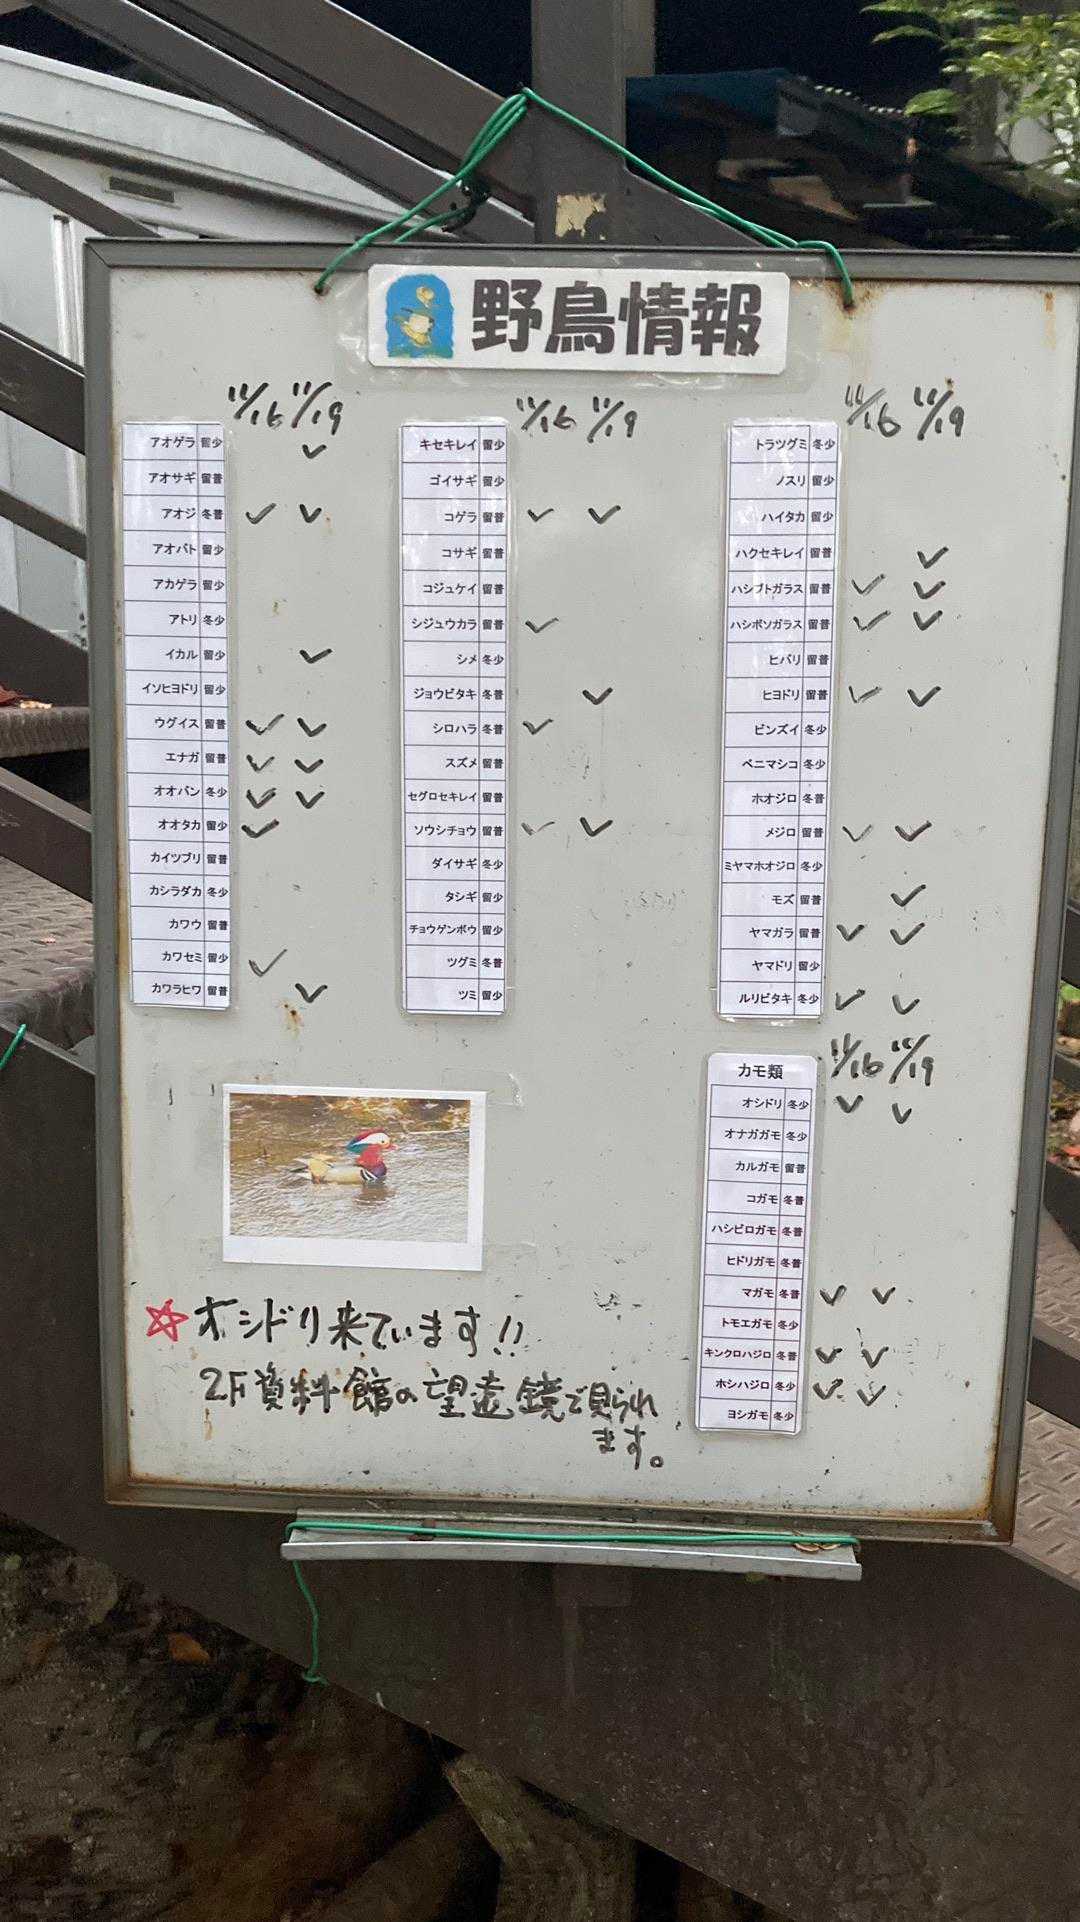 野鳥情報
11/16 11/19
アオゲラ 留少 ✓
アオサギ 留普
アオジ 冬普 ✓ ✓
アオバト 留少
アカゲラ 留少
アトリ 冬少
イカル 留少 ✓
イソヒヨドリ 留少
ウグイス 留普 ✓ ✓
エナガ 留普 ✓ ✓
オオバン 冬少 ✓ ✓
オオタカ 留少 ✓
カイツブリ 留普
カシラダカ 冬少
カワウ 留普
カワセミ 留少 ✓
カワラヒワ 留普 ✓
11/16 11/19
キセキレイ 留少
ゴイサギ 留少
コゲラ 留普 ✓ ✓
コサギ 留普
コジュケイ 留普
シジュウカラ 留普 ✓
シメ 冬少
ジョウビタキ 冬普 ✓
シロハラ 冬普 ✓
スズメ 留普
セグロセキレイ 留普
ソウシチョウ 留普 ✓ ✓
ダイサギ 冬少
タシギ 留少
チョウゲンボウ 留少
ツグミ 冬普
ツミ 留少
11/16 11/19
トラツグミ 冬少
ノスリ 留少
ハイタカ 留少
ハクセキレイ 留普 ✓
ハシブトガラス 留普 ✓ ✓
ハシボソガラス 留普 ✓ ✓
ヒバリ 留普
ヒヨドリ 留普 ✓ ✓
ビンズイ 冬少
ベニマシコ 冬少
ホオジロ 冬普
メジロ 留普 ✓ ✓
ミヤマホオジロ 冬少
モズ 留普 ✓
ヤマガラ 留普 ✓ ✓
ヤマドリ 留少
ルリビタキ 冬少 ✓ ✓
11/16 11/19
カモ類
オシドリ 冬少 ✓ ✓
オナガガモ 冬少
カルガモ 留普
コガモ 冬普
ハシビロガモ 冬普
ヒドリガモ 冬普
マガモ 冬普 ✓ ✓
トモエガモ 冬少
キンクロハジロ 冬普 ✓ ✓
ホシハジロ 冬少 ✓ ✓
ヨシガモ 冬少
☆オシドリ来ています!!
2F資料館の望遠鏡で見られ
ます。